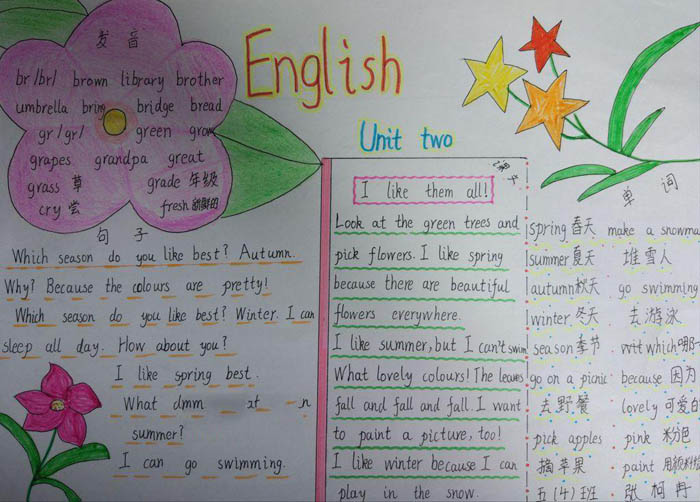 English
Unit two
发音
br/br/ brown library brother
umbrella bring bridge bread
gr/gr/ green grow
grapes grandpa great
grass 草 grade 年级
cry 尝 fresh 新鲜的
句子
Which season do you like best? Autumn.
Why? Because the colours are pretty!
Which season do you like best? Winter. I can
sleep all day. How about you?
I like spring best.
What
summer?
I can go swimming.
课文
I like them all!
Look at the green trees and
pick flowers. I like spring
because there are beautiful
flowers everywhere.
I like summer, but I can't swim
What lovely colours! The leaves
fall and fall and fall. I want
to paint a picture, too!
I like winter because I can
play in the snow.
单词
spring 春天 make a snowma
summer 夏天 堆雪人
autumn 秋天 go swimming
winter 冬天 去游泳
season 季节 which 哪一
go on a picnic because 因为
去野餐 lovely 可爱的
pick apples pink 粉色
摘苹果 paint 用颜料
五(4)班 张柯冉